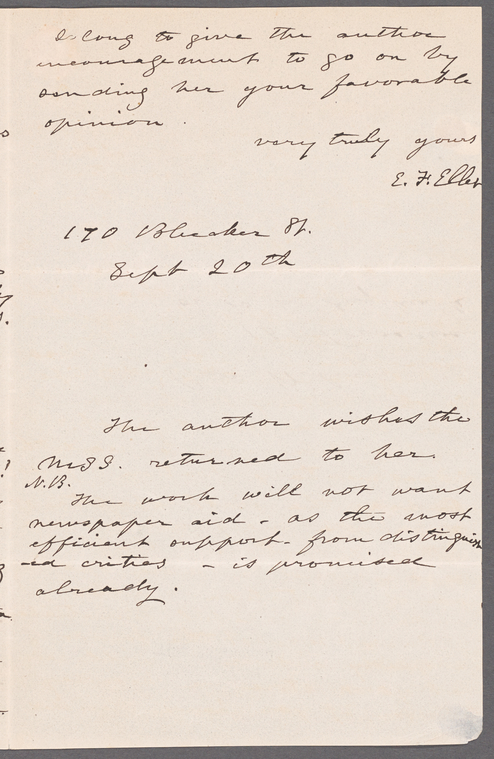 I long to give the author
encouragement to go on by
sending her your favorable
opinion.
very truly yours
E. F. Ellet
170 Bleecker St.
Sept 20th
The author wishes the
MSS. returned to her.
N.B.
The work will not want
newspaper aid - as the most
efficient support - from distinguish
-ed critics - is promised
already.